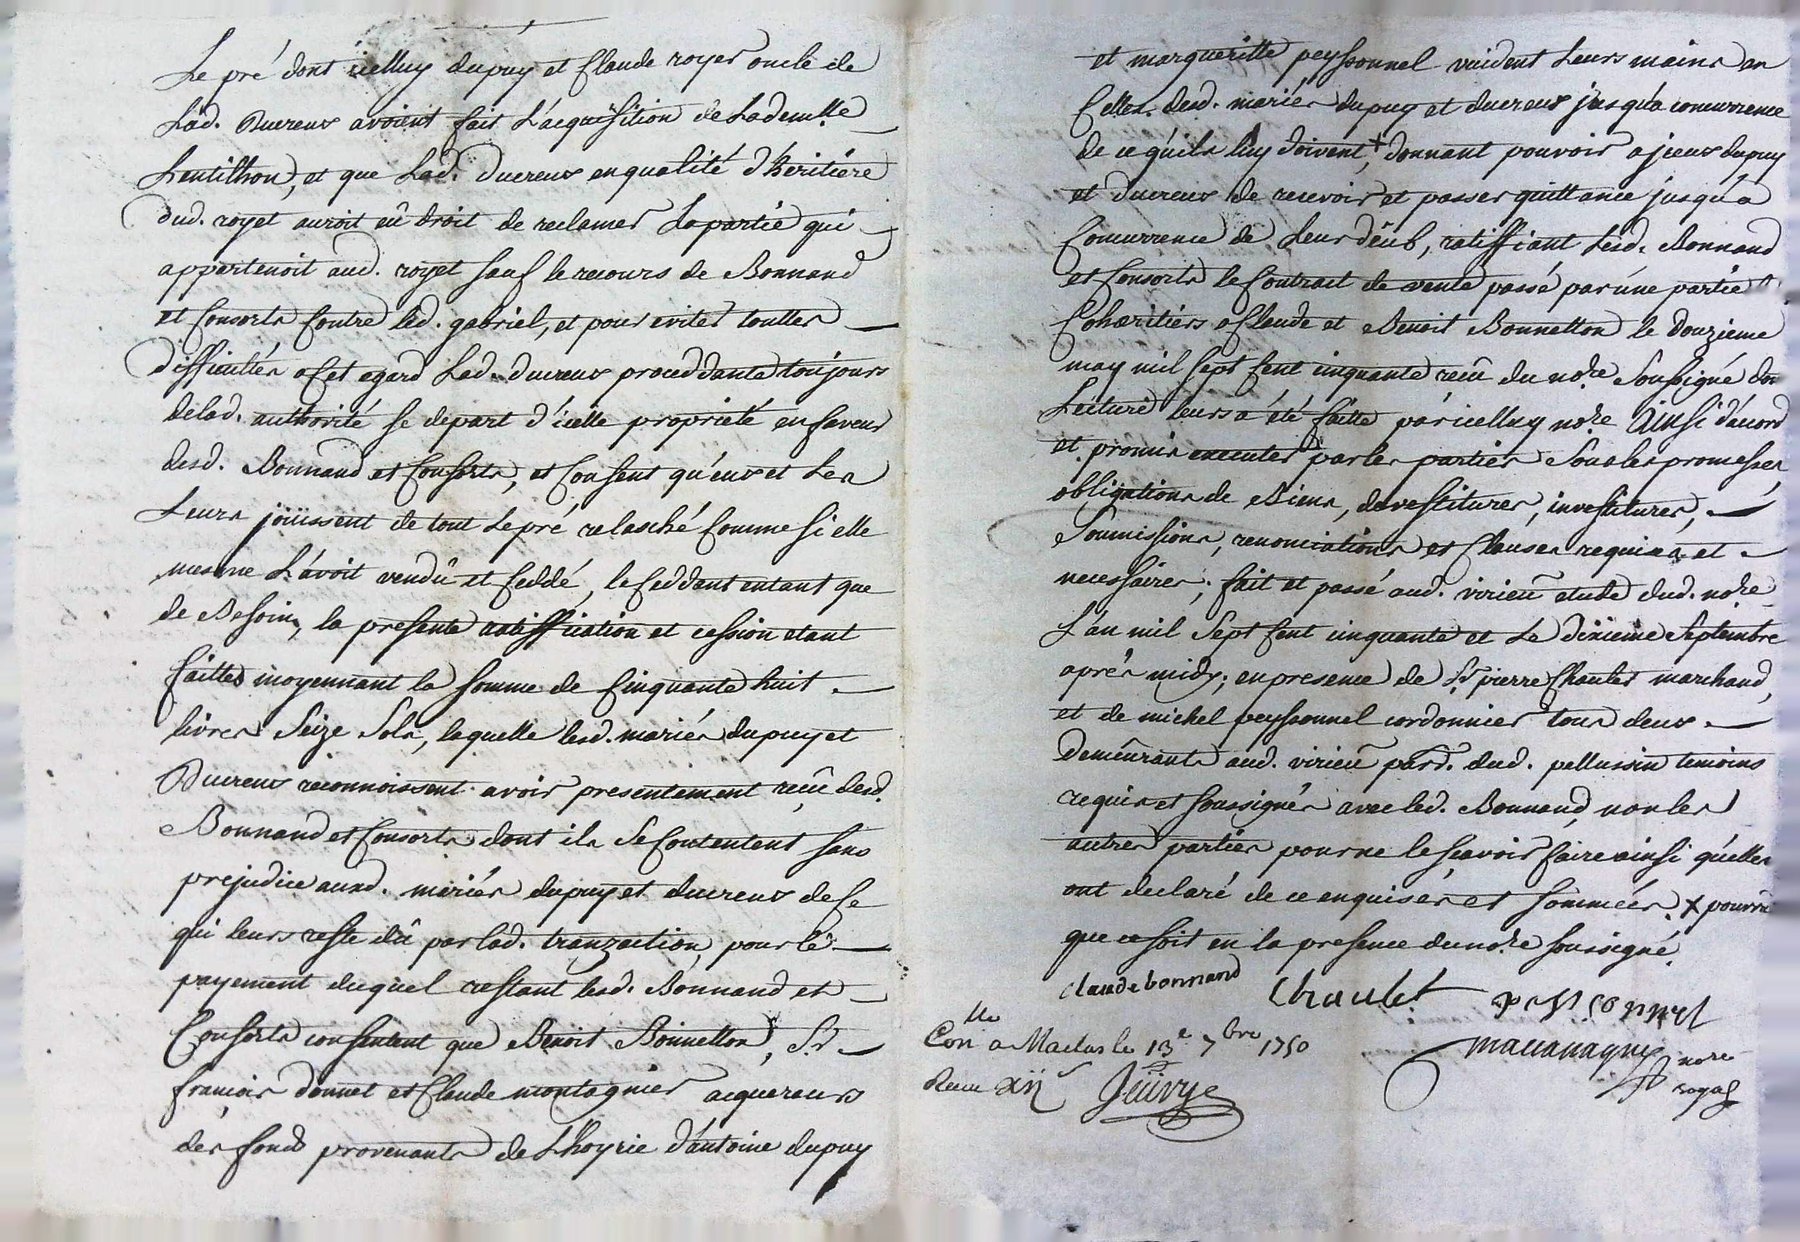 Le pré dont icelluy dupuy et Claude royer oncle de
Lad. Ducreux avoient fait L'acquisition de Lademlle
Lentilhon, et que Lad. Ducreux en qualité d'heritière
dud. royet auroit eû droit de reclamer La partie qui
appartenoit aud. royet sauf le recours de Bonnand
et Consorts Contre led. gabriel, et pour eviter touttes
difficultés a Cet egard Lad. Ducreux proceddante toujours
delad. authorité se depart d'icelle proprieté en faveur
desd. Bonnand et Consorts, et Consent qu'eux et Les
Leurs joüissent de tout Le pré relasché Comme si elle
mesme L'avoit vendû et Ceddé, le Ceddant entant que
de Besoin, la presente ratiffication et cession etant
faittes moyennant la somme de Cinquante huit
livres Seize Sols, laquelle lesd. mariés dupuy et
Ducreux reconnoissent avoir presentement reçû desd.
Bonnand et Consorts dont ils Se Contentent sans
prejudice auxd. mariés dupuy et ducreux de Ce
qui leurs reste dû par lad. tranzaction, pour le
payement duquel restant lesd. Bonnand et
Consorts consentent que Benoit Bonnetton, Sr.
francois donnet et Claude montagnier acquereurs
des fonds provenants de L'hoyrie d'antoine dupuy
et margueritte peyssonnel vuident Leurs mains en
Celles desd. mariés dupuy et ducreux jusqu'a concurrence
de ce qu'ils luy doivent,+ donnant pouvoir a jceux dupuy
et ducreux de recevoir et passer quittance jusqu'a
Concurrence de Leur dëub, ratiffiant Lesd. Bonnand
et Consorts le Contract de vente passé par une partie
Cohæritiers a Claude et Benoit Bonnetton le douzieme
may mil sept Cent cinquante reçû du nore Soussigné don
Lecture leurs a été faitte par icelluy nore Ainsi d'acord
et promis executer par les parties Sous les promesses
obligations de Biens, devestitures, investitures,
Soumissions, renonciations et Clauses requises et
necessaires; fait et passé aud. virieü etude dud. nore
L'an mil Sept Cent cinquante et Le dixieme Septembre
après midy; en presence de Sr pierre Chaulet marchand,
et de michel peyssonnel cordonnier tous deux
demeürants aud. virieü parr. dud. pellussin temoins
requis et soussignés avec led. Bonnand, non les
autres parties pour ne le sçavoir faire ainsi qu'elles
ont declaré de ce enquises et sommées. x pourvû
que ce soit en la presence du nore soussigné.
claude bonnand Chaulet peyssonnel
Conllé a Maclas le 13e 7bre 1750
Reçu xij Juivye
maccanagny nore
royal